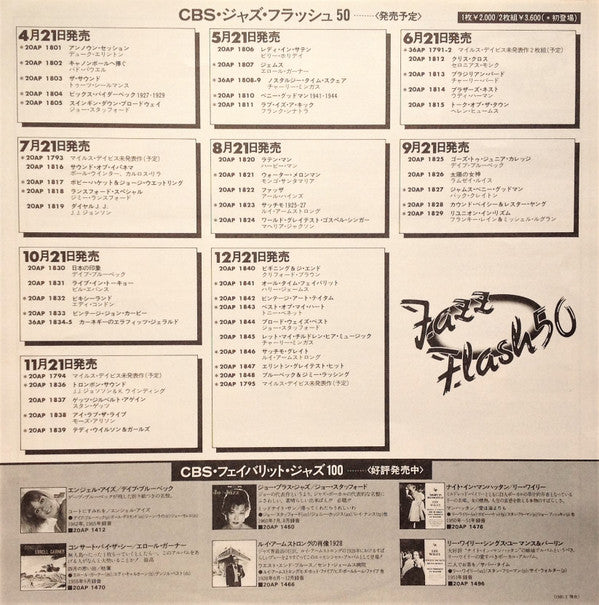 CBS・ジャズ・フラッシュ50 ……〈発売予定〉
1枚¥2,000 2枚組¥3,600(*初登場)
4月21日発売
*20AP 1801 アンノウン・セッション
デューク・エリントン
20AP 1802 キャノンボールへ捧ぐ
バド・パウエル
20AP 1803 ザ・サウンド
トゥーツ・シールマンス
*20AP 1804 ビックス・バイダーベック1927-1929
*20AP 1805 スインギン・ダウン・ブロードウェイ
ジョー・スタッフォード
5月21日発売
20AP 1806 レディ・イン・サテン
ビリー・ホリデイ
20AP 1807 ジェムス
エロール・ガーナー
*36AP 1808-9 ノスタルジー・タイム・スクェア
チャーリー・ミンガス
*20AP 1810 ベニー・グッドマン1941-1944
*20AP 1811 ラブ・イズ・ア・キック
フランク・シナトラ
6月21日発売
*36AP 1791-2 マイルス・デイビス未発表作2枚組(予定)
20AP 1812 クリス・クロス
セロニアス・モンク
*20AP 1813 ブラジリアン・バード
チャーリー・バード
*20AP 1814 ブラザーズ・ネスト
ウディ・ハーマン
*20AP 1815 トーク・オブ・ザ・タウン
ヘレン・ヒュームス
7月21日発売
*20AP 1793 マイルス・デイビス未発表作(予定)
20AP 1816 サウンド・オブ・イパネマ
ポール・ウインター、カルロス・リラ
*20AP 1817 ボビー・ハケット&ジョージ・ウェットリング
*20AP 1818 ランスフォード・スペシャル
ジミー・ランスフォード
20AP 1819 ダイヤル J.J.
J.J.ジョンソン
8月21日発売
20AP 1820 ラテン・マン
ハービー・マン
*20AP 1821 ウォーター・メロンマン
モンゴ・サンタマリア
*20AP 1822 ファッザ
アール・ハインズ
*20AP 1823 サッチモ1925-27
ルイ・アームストロング
*20AP 1824 ワールド・グレイテスト・ゴスペル・シンガー
マヘリア・ジャクソン
9月21日発売
20AP 1825 ゴーズ・トゥ・ジュニア・カレッジ
デイブ・ブルーベック
20AP 1826 太陽の女神
ラムゼイ・ルイス
*20AP 1827 ジャムス・ベニー・グッドマン
バック・クレイトン
*20AP 1828 カウント・ベイシー&レスター・ヤング
*20AP 1829 リユニオン・イン・リズム
フランキー・レイン&ミッシェル・ルグラン
10月21日発売
20AP 1830 日本の印象
デイブ・ブルーベック
20AP 1831 ライブ・イン・トーキョー
ビル・エバンス
*20AP 1832 ピキシーランド
エディ・コンドン
*20AP 1833 ビンテージ・ジョン・カービー
36AP 1834-5 カーネギーのエラフィッツ・ジェラルド
11月21日発売
*20AP 1794 マイルス・デイビス未発表作(予定)
*20AP 1836 トロンボン・サウンド
J.J.ジョンソン&K.ウインディング
20AP 1837 ゲッツ・ジルベルト・アゲイン
スタン・ゲッツ
*20AP 1838 アイ・ラブ・ザ・ライブ
モーズ・アリソン
*20AP 1839 テディ・ウイルソン&ガールズ
12月21日発売
*20AP 1840 ビギニング&ジ・エンド
クリフォード・ブラウン
*20AP 1841 オール・タイム・フェイバリット
ハリー・ジェームス
*20AP 1842 ビンテージ・アート・テイタム
*20AP 1843 ベスト・オブ・マイ・ハート
トニー・ベネット
*20AP 1844 ブロード・ウェイズ・ベスト
ジョー・スタッフォード
20AP 1845 レット・マイ・チルドレン・ヒア・ミュージック
チャーリー・ミンガス
*20AP 1846 サッチモ・グレイト
ルイ・アームストロング
*20AP 1847 エリントン・グレイテスト・ヒット
*20AP 1848 ブルーベック&ジミー・ラッシング
*20AP 1795 マイルス・デイビス未発表作(予定)
Jazz
Flash50
CBS・フェイバリット・ジャズ100 ……〈好評発売中〉
エンジェル・アイズ/デイブ・ブルーベック
コートにすみれを/エンジェル・アイズ
■20AP 1412
ジョー・プラス・ジャズ/ジョー・スタッフォード
■20AP 1460
ナイト・イン・マンハッタン/リー・ワイリー
■20AP 1476
コンサート・バイ・ザ・シー/エロール・ガーナー
ERROLL GARNER
■20AP 1470
ルイ・アームストロングの肖像1928
■20AP 1466
リー・ワイリー・シングス・ユーマンス&バーリン
■20AP 1496